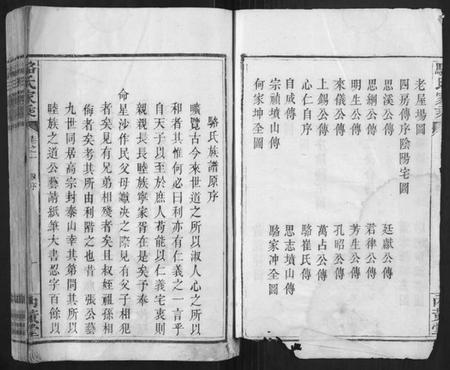 老屋場圖
四房傳序陰陽宅圖
思溪公傳
思綱公傳
明生公傳
來儀公傳
上錫公傳
心仁自序
自成傳
宗禎墳山傳
何家坤全圖
廷獻公傳
君律公傳
芳生公傳
孔昭公傳
萬占公傳
駱崔氏傳
思志墳山傳
駱家冲全圖
駱氏族譜原序
曠覽古今來世道之所以淑人心之所以
和者其惟何必曰利亦有仁義之一言乎
自天子以至於庶人苟能以仁義宅衷則
親親長長睦族寧家胥在是矣予奉
命星沙作民父母讞决之際見有父子相犯
者矣見有兄弟相殘者矣且有叔姪祖孫相
侮者矣考其所由利階之也昔 張公藝
九世同居高宗封泰山幸其第問其所以
睦族之道公藝請紙筆大書忍字百餘以
駱氏家乘